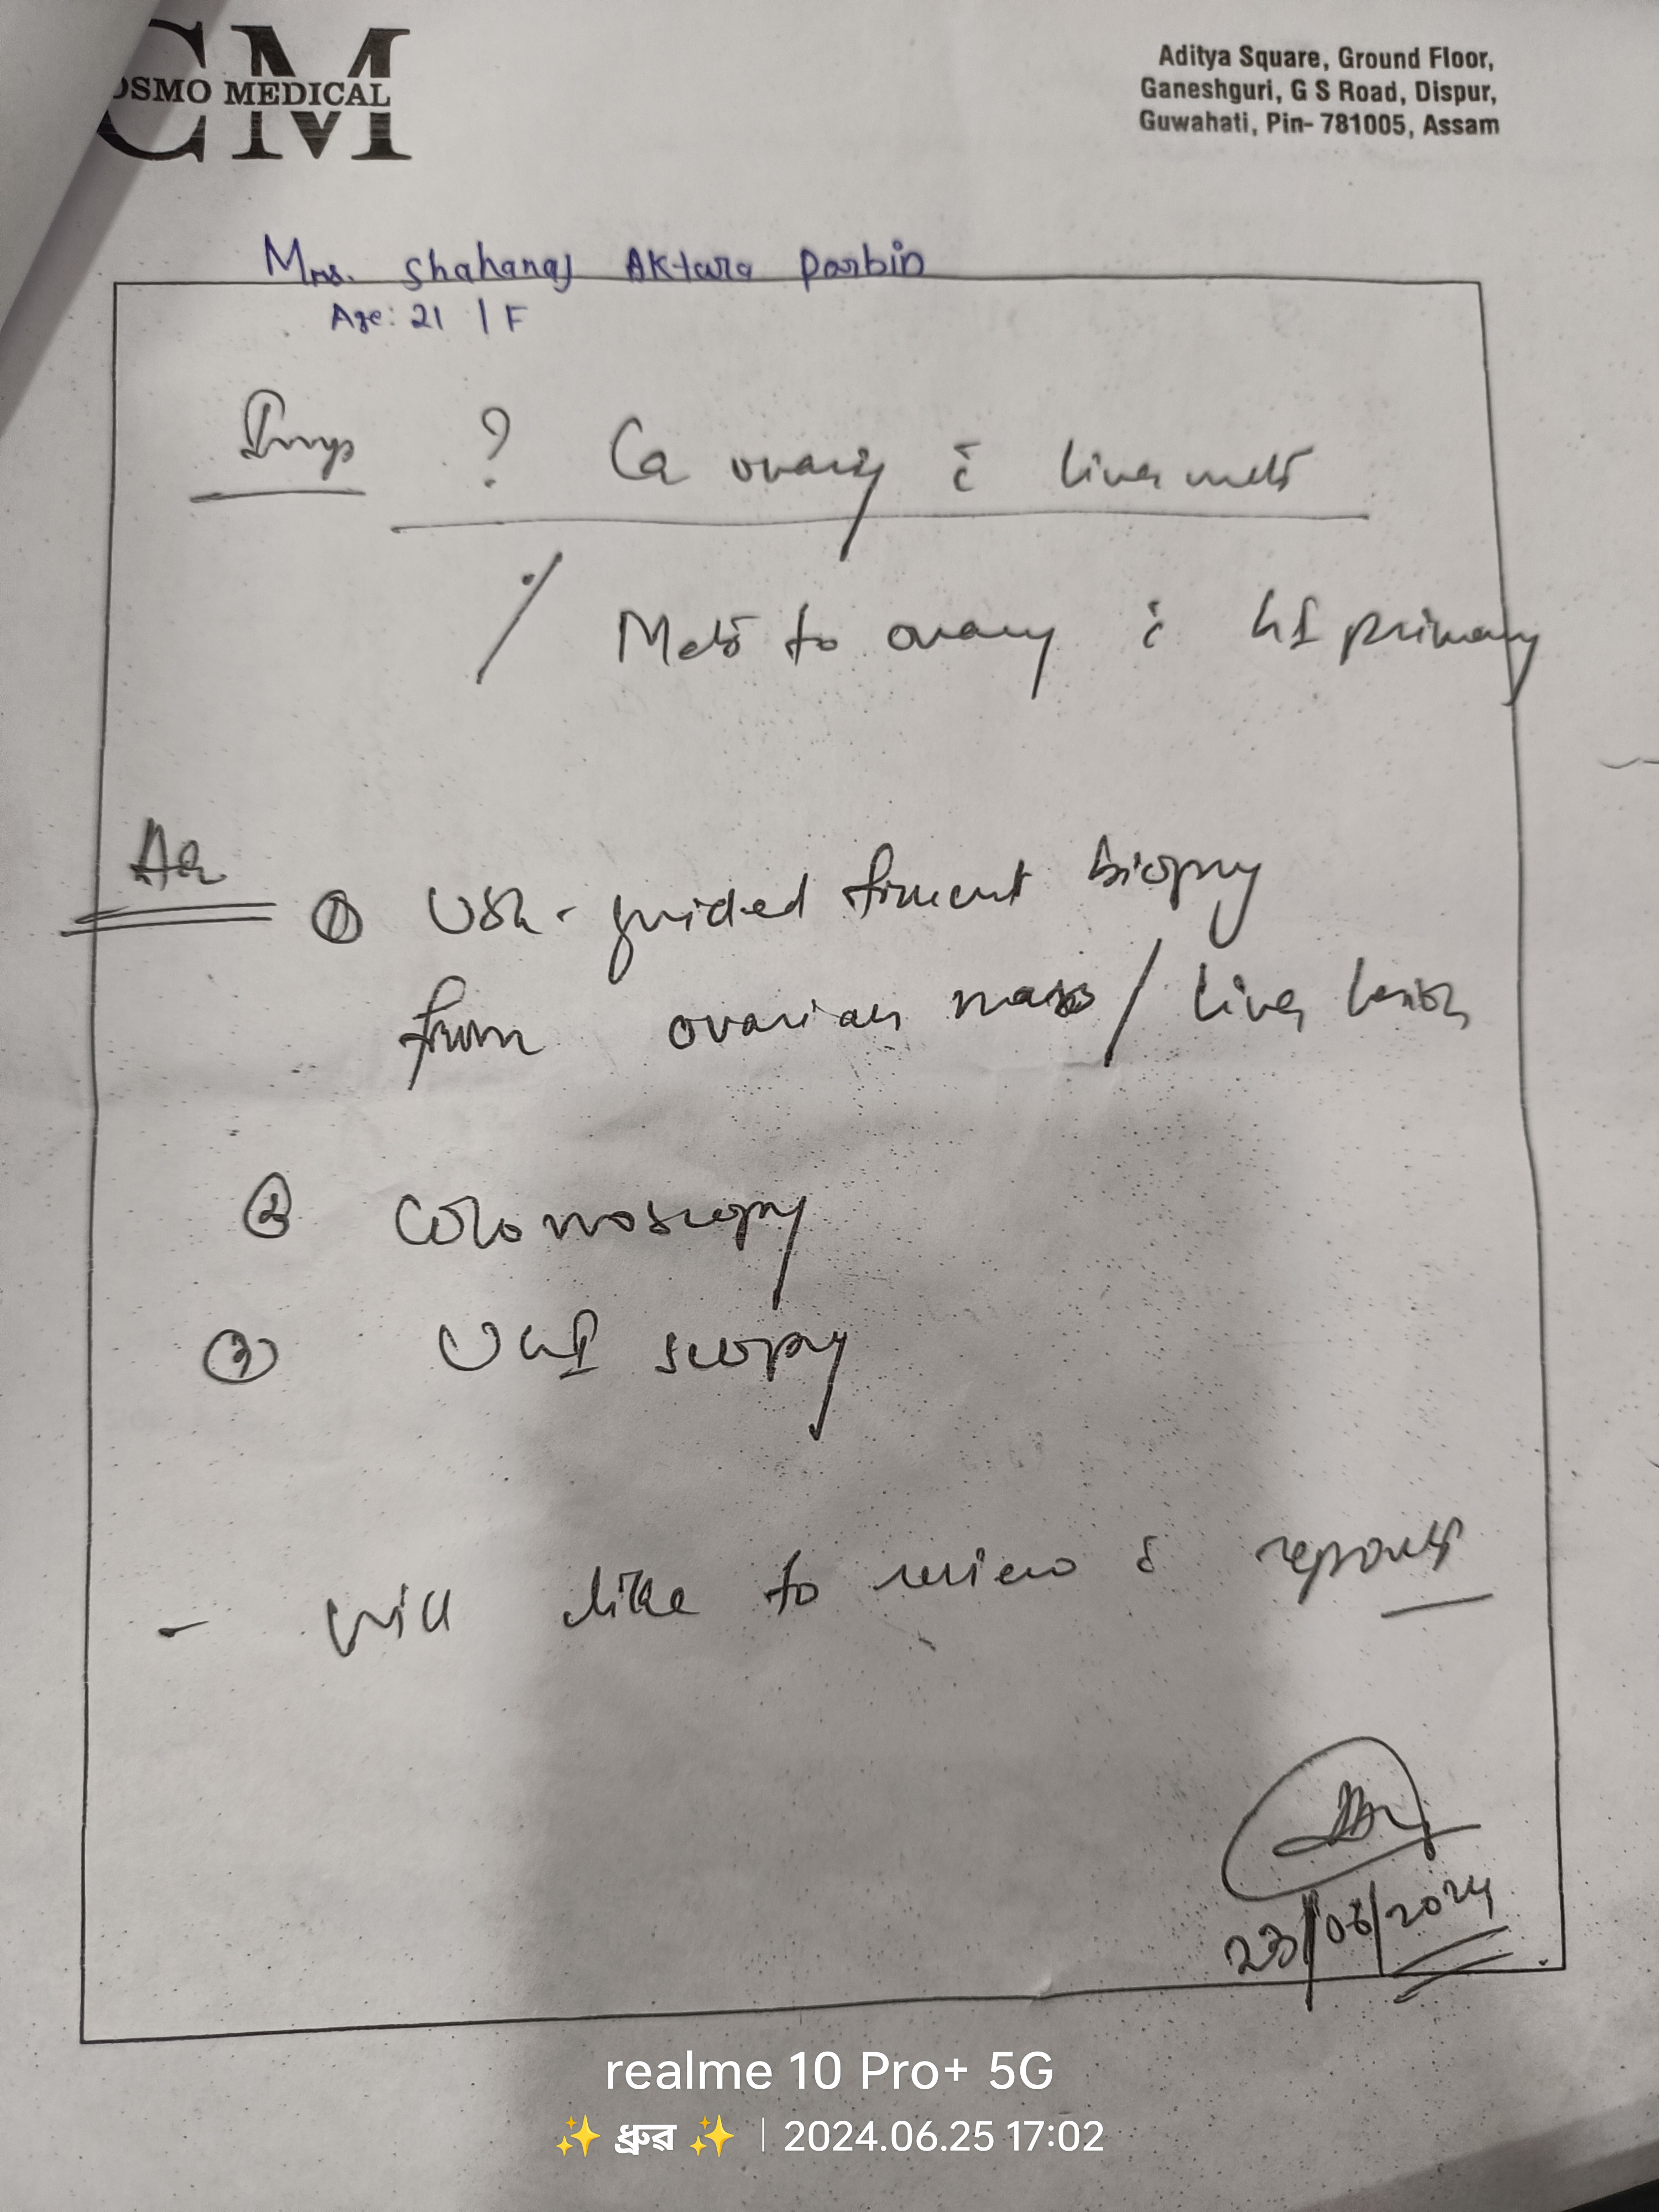 CM
OSMO MEDICAL
Aditya Square, Ground Floor,
Ganeshguri, G S Road, Dispur,
Guwahati, Pin- 781005, Assam
Mrs. Shahanaj Aktara Parbin
Age: 21 / F
Imp ? Ca ovary c̄ liver mets
/ Mets to ovary c̄ GI primary
① USG-guided trucut biopsy
from ovarian mass / liver lesion
② Colonoscopy
③ UGI scopy
- Will like to review c̄ reports
23/06/2024
realme 10 Pro+ 5G
✨ ধ্ৰুৱ ✨ | 2024.06.25 17:02